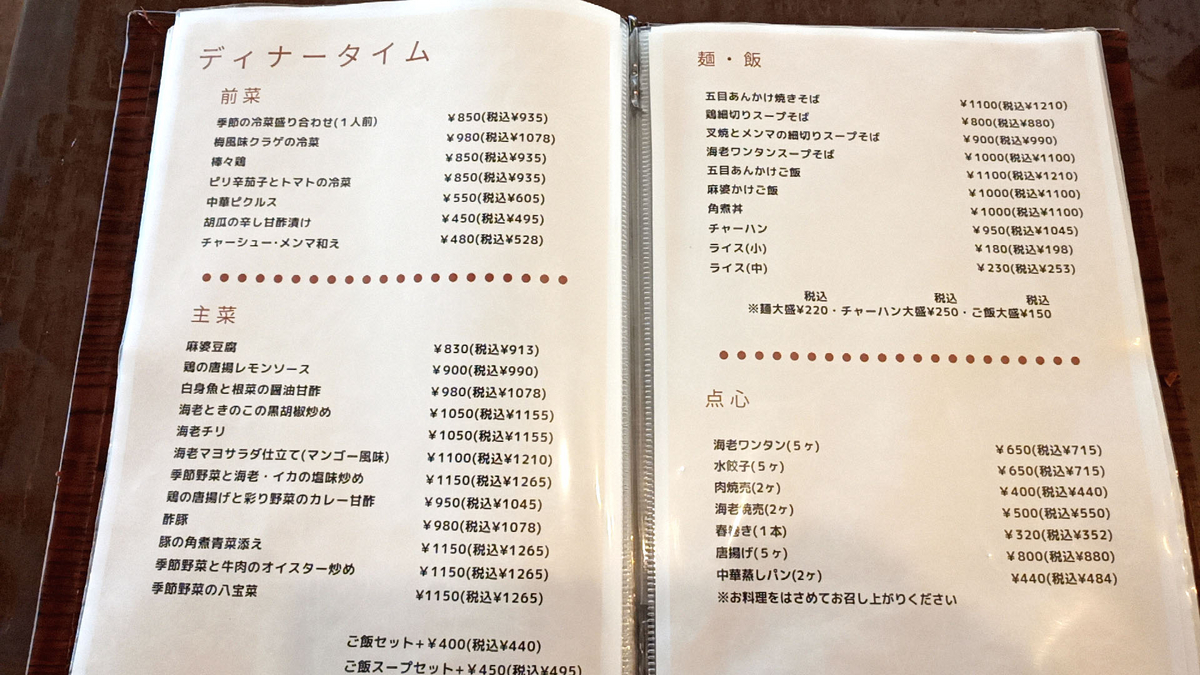 ディナータイム
前菜
季節の冷菜盛り合わせ(1人前) ¥850(税込¥935)
梅風味クラゲの冷菜 ¥980(税込¥1078)
棒々鶏 ¥850(税込¥935)
ピリ辛茄子とトマトの冷菜 ¥850(税込¥935)
中華ピクルス ¥550(税込¥605)
胡瓜の辛し甘酢漬け ¥450(税込¥495)
チャーシュー・メンマ和え ¥480(税込¥528)
主菜
麻婆豆腐 ¥830(税込¥913)
鶏の唐揚レモンソース ¥900(税込¥990)
白身魚と根菜の醤油甘酢 ¥980(税込¥1078)
海老ときのこの黒胡椒炒め ¥1050(税込¥1155)
海老チリ ¥1050(税込¥1155)
海老マヨサラダ仕立て(マンゴー風味) ¥1100(税込¥1210)
季節野菜と海老・イカの塩味炒め ¥1150(税込¥1265)
鶏の唐揚げと彩り野菜のカレー甘酢 ¥950(税込¥1045)
酢豚 ¥980(税込¥1078)
豚の角煮青菜添え ¥1150(税込¥1265)
季節野菜と牛肉のオイスター炒め ¥1150(税込¥1265)
季節野菜の八宝菜 ¥1150(税込¥1265)
ご飯セット+¥400(税込¥440)
ご飯スープセット+¥450(税込¥495)
麺・飯
五目あんかけ焼きそば ¥1100(税込¥1210)
鶏細切りスープそば ¥800(税込¥880)
叉焼とメンマの細切りスープそば ¥900(税込¥990)
海老ワンタンスープそば ¥1000(税込¥1100)
五目あんかけご飯 ¥1100(税込¥1210)
麻婆かけご飯 ¥1000(税込¥1100)
角煮丼 ¥1000(税込¥1100)
チャーハン ¥950(税込¥1045)
ライス(小) ¥180(税込¥198)
ライス(中) ¥230(税込¥253)
税込 税込 税込
※麺大盛¥220・チャーハン大盛¥250・ご飯大盛¥150
点心
海老ワンタン(5ヶ) ¥650(税込¥715)
水餃子(5ヶ) ¥650(税込¥715)
肉焼売(2ヶ) ¥400(税込¥440)
海老焼売(2ヶ) ¥500(税込¥550)
春巻き(1本) ¥320(税込¥352)
唐揚げ(5ヶ) ¥800(税込¥880)
中華蒸しパン(2ヶ) ¥440(税込¥484)
※お料理をはさめてお召し上がりください